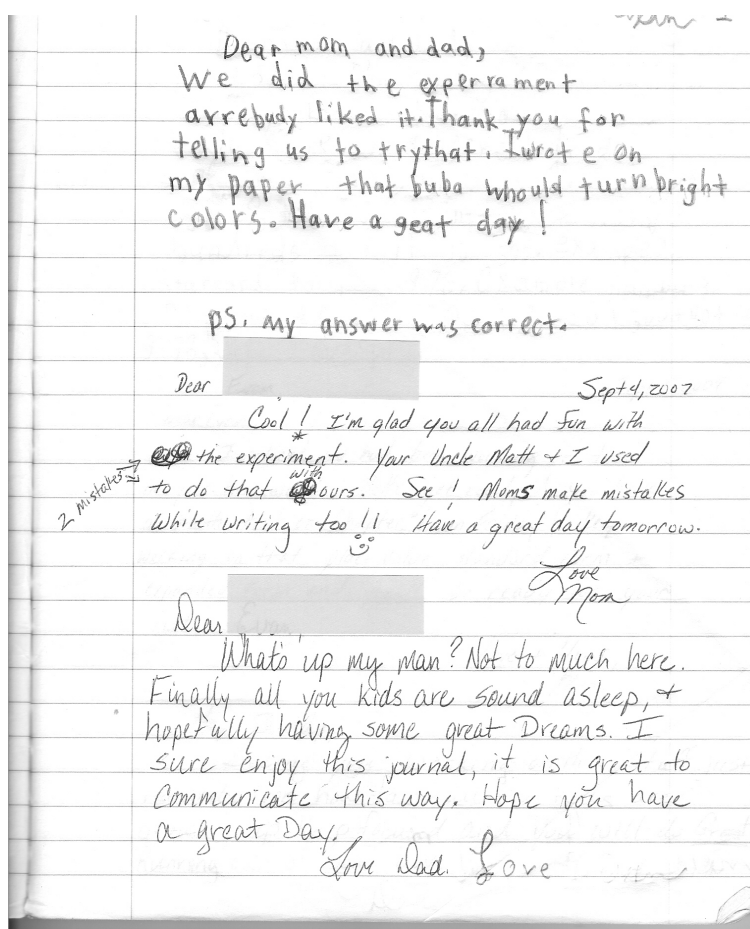 Dear mom and dad,
We did the experrament
avrebudy liked it. Thank you for
telling us to trythat. I wrote on
my paper that buba whould turn bright
colors. Have a geat day!
ps. my answer was correct.
Dear
Sept 4, 2007
Cool! I'm glad you all had fun with
the experiment. Your Uncle Matt & I used
with
to do that ours. See! Moms make mistakes
2 mistakes
while writing too!! Have a great day tomorrow.
Love
Mom
Dear
What's up my man? Not to much here.
Finally all you kids are sound asleep, &
hopefully having some great Dreams. I
sure enjoy this journal, it is great to
communicate this way. Hope you have
a great Day.
Love Dad. Love